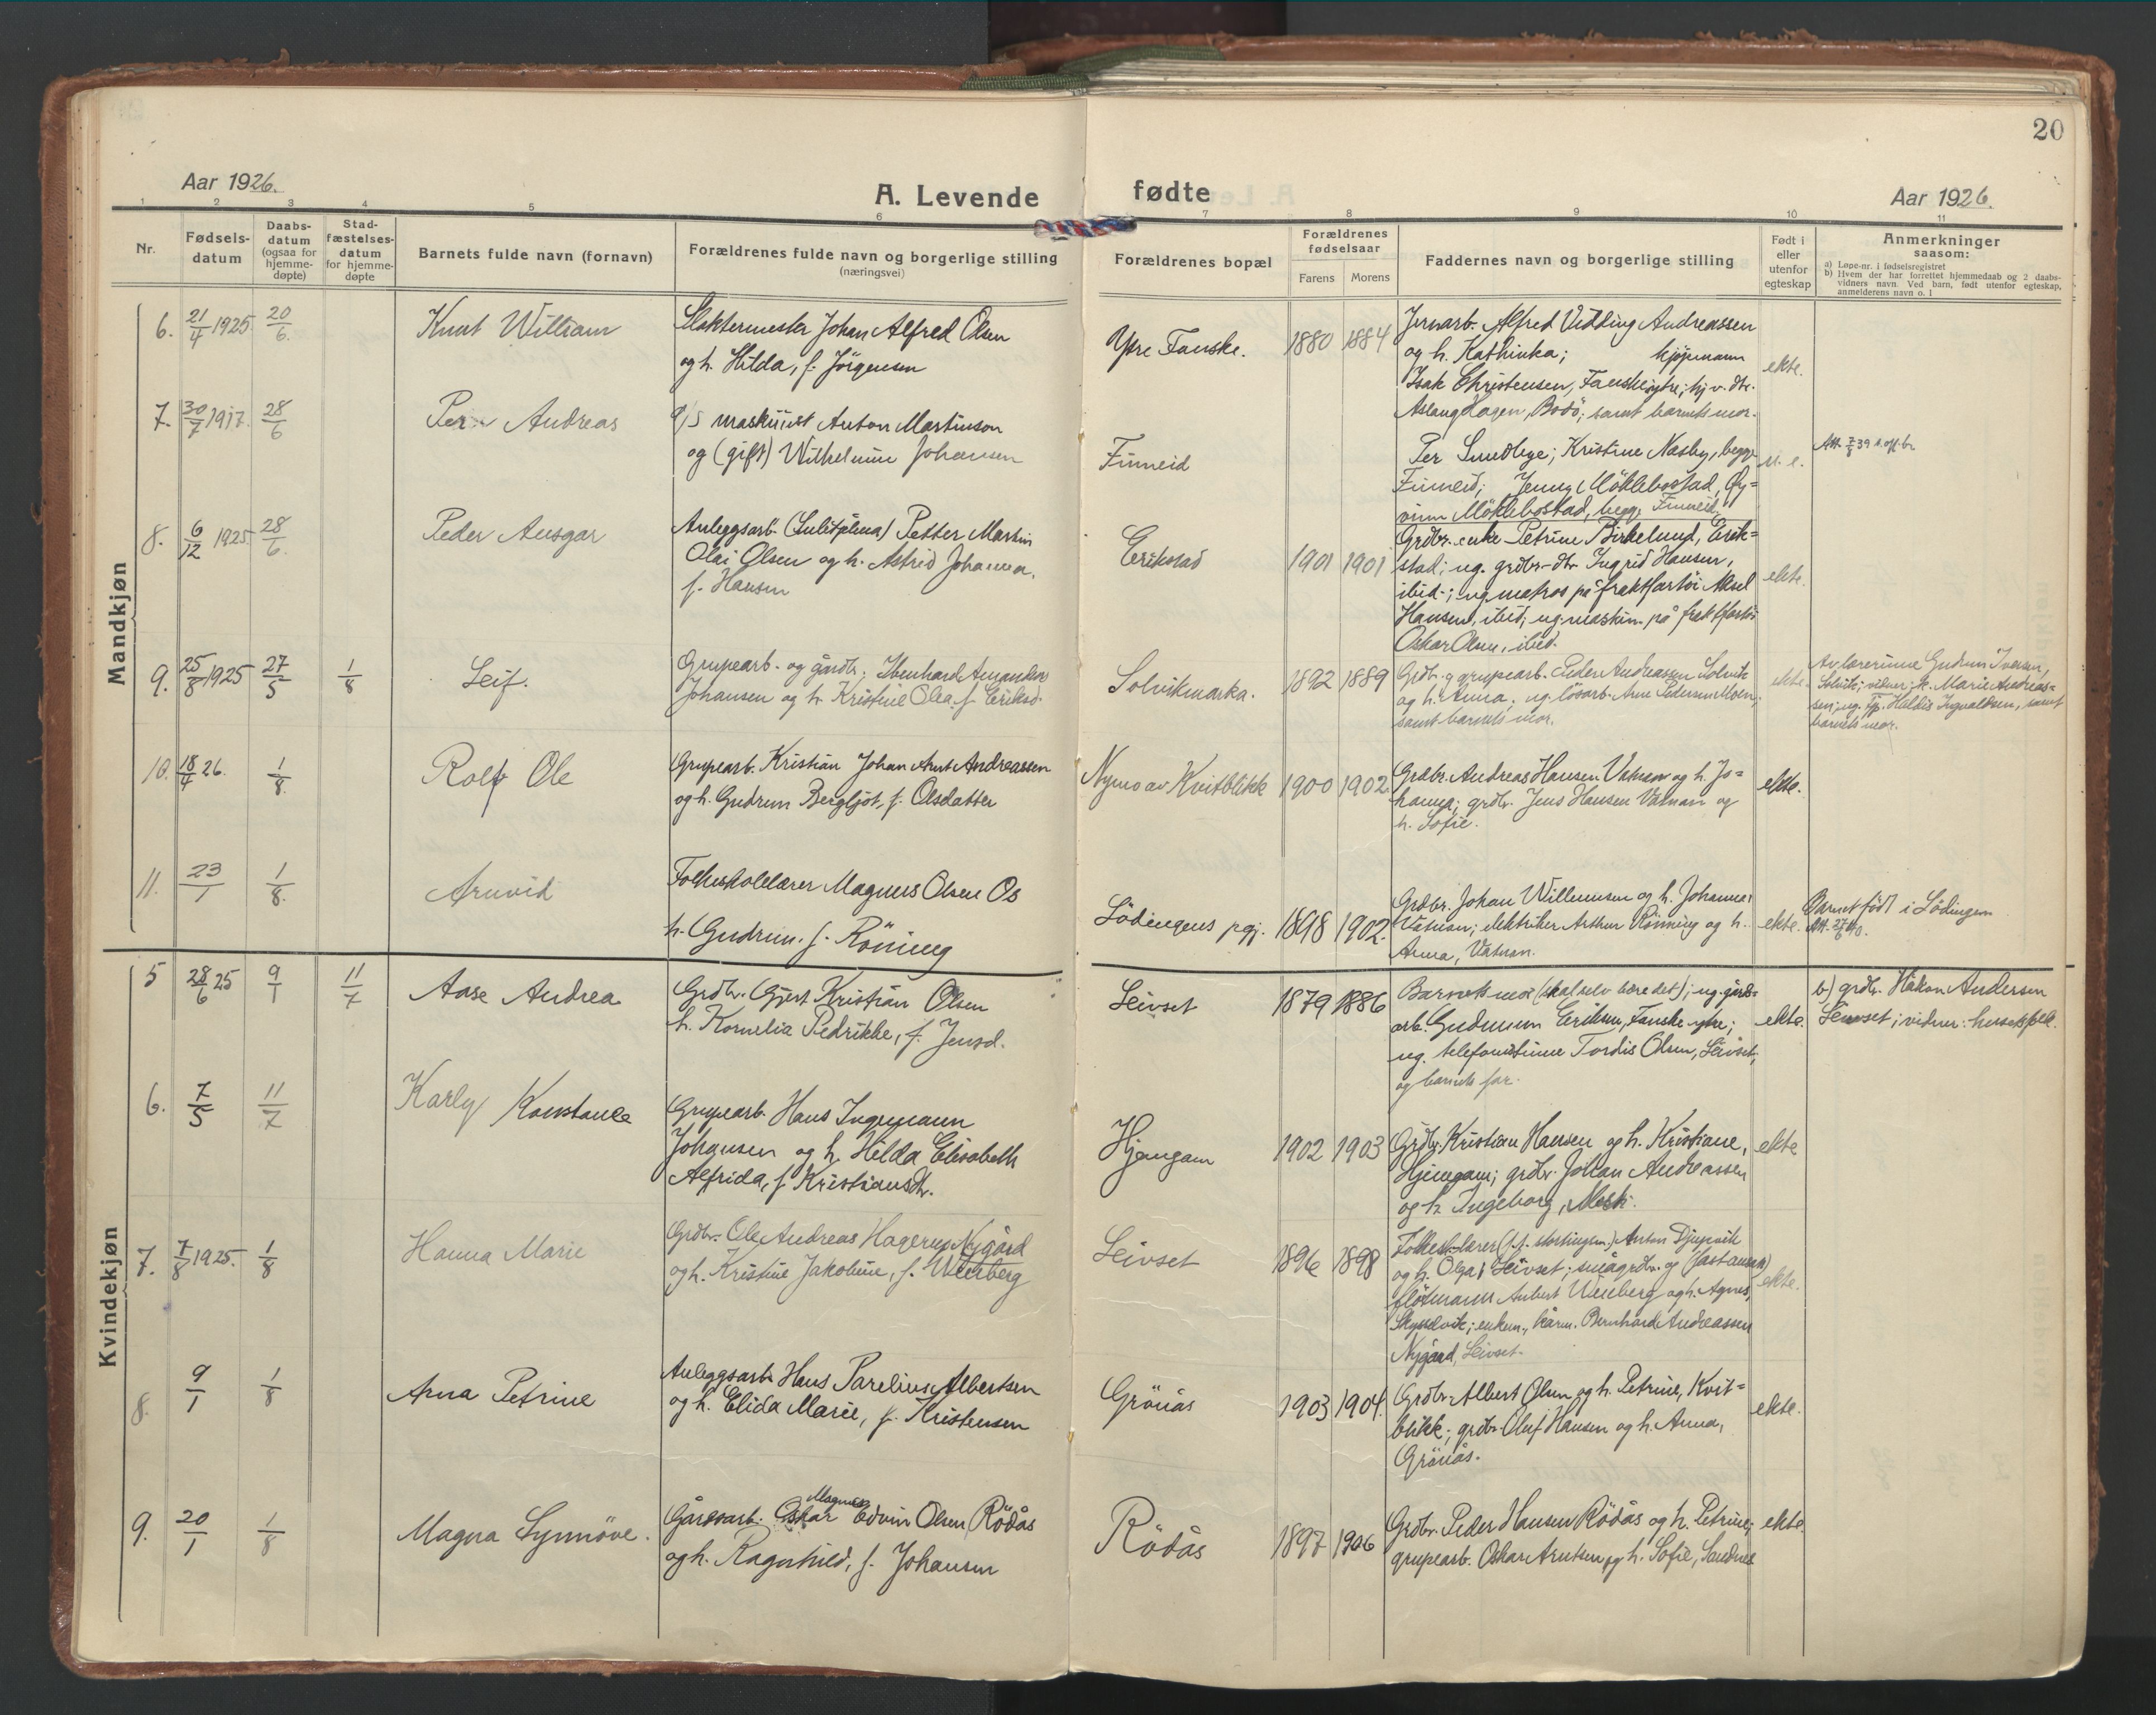 20
Aar 1926.
A. Levende
fødte
Aar 1926.
1 2 3 4 5 6 7 8 9 10 11
Nr.
Fødsels-
datum
Daabs-
datum
(ogsaa for
hjemme-
døpte)
Stad-
fæstelses-
datum
for hjemme-
døpte
Barnets fulde navn (fornavn)
Forældrenes fulde navn og borgerlige stilling
(næringsvei)
Forældrenes bopæl
Forældrenes
fødselsaar
Farens Morens
Faddernes navn og borgerlige stilling
Født i
eller
utenfor
egteskap
Anmerkninger
saasom:
a) Løpe-nr. i fødselsregistret
b) Hvem der har forrettet hjemmedaab og 2 daabs-
vidners navn. Ved barn, født utenfor egteskap,
anmelderens navn o. l
Mandkjøn
6. 21/4 1925 20/6. Knut William
Slaktermester Johan Alfred Olsen
og h. Hilda, f. Jörgensen
Ytre Fauske. 1880 1884
Jernarb. Alfred Vidding Andreassen
og h. Kathinka; kjöpmann
Isak Christensen, Fauske ytre; hj.v. dtr.
Aslaug Hagen, Bodö; samt barnets mor.
ekte.
7. 30/7 1917. 28/6 Per Andreas
d/s maskinist Anton Martinson
og (gift) Wilhelmine Johansen
Finneid
Per Sundbye; Kristine Næsby, begge
Finneid; Jenny Möklebostad, Öy-
vinn Möklebostad, begge Finneid,
u. e.
Att. 7/8 39 n. off. br
8. 6/12 1925 28/6. Peder Ansgar
Anleggsarb. (Sulitjelma) Petter Martin
Olai Olsen og h. Astrid Johanna,
f. Hansen
Erikstad 1901 1901
Grdbr. enke Petrine Birkelund, Erik-
stad; ug. grdbr-dtr Ingrid Hansen,
ibid-; ug. matros på fraktfartöi Aksel
Hansen, ibid; ug. maskin. på fraktfartöi
Oskar Olsen, ibid.
ekte.
9. 25/8 1925 27/5 1/8 Leif.
Grupearb. og gårdbr. Ibenhard Amandus
Johansen og h. Kristine Olea f. Eriksd.
Solvikmarka. 1892 1889
Grdbr. g grupearb. Peder Andreassen Solvik
og h. Anna; ug. lösarb. Arne Pedersen Moen;
samt barnets mor.
ekte
Av lærerinne Gudrun Iversen,
Solvik; vidner: k. Marie Andreas-
sen; ug. tj. Heldis Ingvaldsen, samt
barnets mor.
10. 18/4 26. 1/8. Rolf Ole
Grupearb. Kristian Johan Arnt Andreassen
og h. Gudrun Bergljot, f. Olsdatter
Nymo av Kvitblikk 1900 1902
Grdbr. Andreas Hansen Vatnan og h. Jo-
hanna; grdbr. Jens Hansen Vatnan og
h. Sofie.
ekte.
11. 23/1 1/8. Arnvid
Folkeskolelærer Magnus Olsen Os
h. Gudrun. f. Röning
Lödingens pgj. 1898 1902.
Grdbr. Johan Willumsen og h. Johanna
Vatnan; elektriker Arthur Rönning og h.
Anna, Vatnan.
ekte.
Barnet född i Lödingen
Att. 27/6 40.
Kvindekjøn
5 28/6 25 9/1 11/7 Aase Andrea
Grdbr. Gjert Kristian Olsen
h. Kornelia Pedrikke, f. Jensd.
Leivset 1879 1886
Barnets mor (skal selv bære det); ug. gårds-
arb. Gudmun Eriksen, Fauske ytre;
ug. telefonistinne Tordis Olsen, Leivset;
og barnets far.
ekte.
b) grdbr. Håkon Andersen
Leivset; vidner: husets folk.
6. 7/5 11/7 Karly Konstanse
Grupearb. Hans Ingemann
Johansen og h. Hilda Elisabeth
Alfrida, f. Kristiansdtr.
Hjemgam 1902 1903
Grdbr. Kristian Hansen og h. Kristiane,
Hjemgam; grdbr. Johan Andreassen
og h. Ingeborg, Mosti.
ekte
7. 7/8 1925. 1/8 Hanna Marie
Grdbr. Ole Andreas Hagerup Nygård
og h. Kristine Jakobine, f. Wenberg
Leivset 1896 1898
Folkesk.lærer (f.t. stortingsm.) Anton Djupvik
og h. Olga, Leivset; smågrdbr. og (fast ansatt)
flötmann Anbert Wenberg og h. Agnes,
Skysselvik; enkem., kårm. Bernhard Andreassen
Nygård, Leivset.
ekte.
8. 9/1 1/8 Anna Petrine
Anleggsarb. Hans Parelius Albertsen
og h. Elida Marie, f. Kristensen
Grönås 1903 1904.
Grdbr. Albert Olsen og h. Petrine, Kvit-
blikk; grdbr. Oluf Hansen og h. Anna,
Grönås.
ekte.
9. 20/1 1/8 Magna Synnöve.
Magnus
Gårdsarb. Oskar Edvin Olsen, Rödås
og h. Ragnhild, f. Johansen
Rödås 1897 1906
Grdbr. Peder Hansen Rödås og h. Petrine;
grupearb. Oskar Arntsen og h. Sofie, Sandnes
ekte.